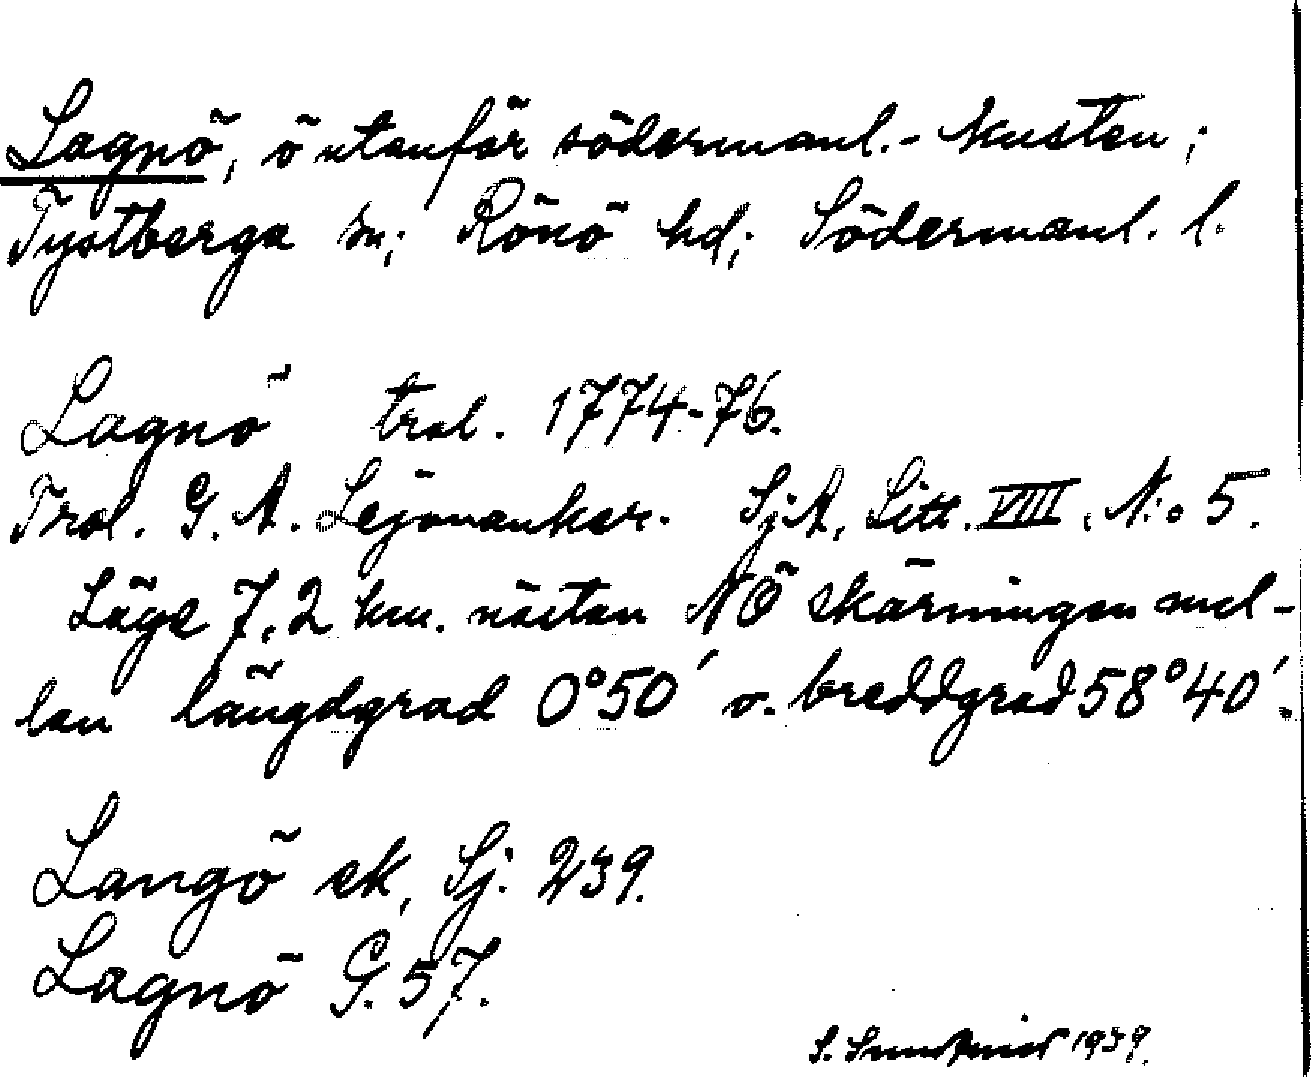 Lagnö, ö utanför södermanl.- kusten;
Tystberga sn; Rönö hd; Södermanl. l.
Lagnö trol. 1774-76.
Trol. G. A. Lejonanker. SjA, Litt. VIII, N:o 5.
Läge 7,2 km. nästan NÖ skärningen mel-
lan längdgrad 0°50' o. breddgrad 58°40'.
Langö sk, Sj. 239.
Lagnö G. 57.
S. 1939.